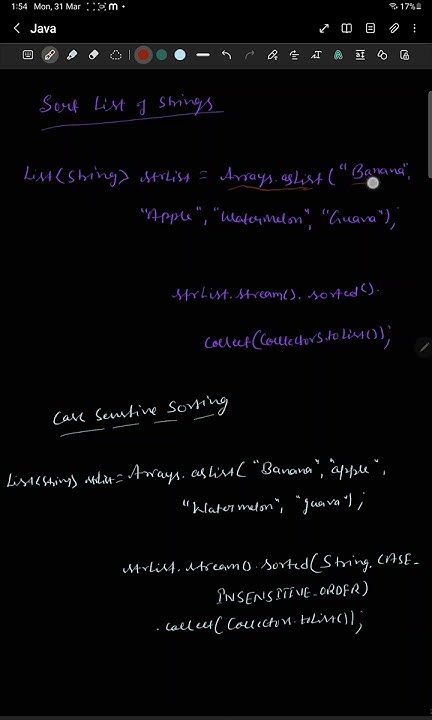 1:54 Mon, 31 Mar
17%
Java
Sort List of Strings
List<String> strList = Arrays.asList("Banana",
"Apple", "Watermelon", "Guava");
strList.stream().sorted().
collect(Collectors.toList());
Case Sensitive Sorting
List<String> strList = Arrays.asList("Banana", "apple",
"Watermelon", "guava");
strList.stream().sorted(String.CASE_
INSENSITIVE_ORDER)
.collect(Collectors.toList());